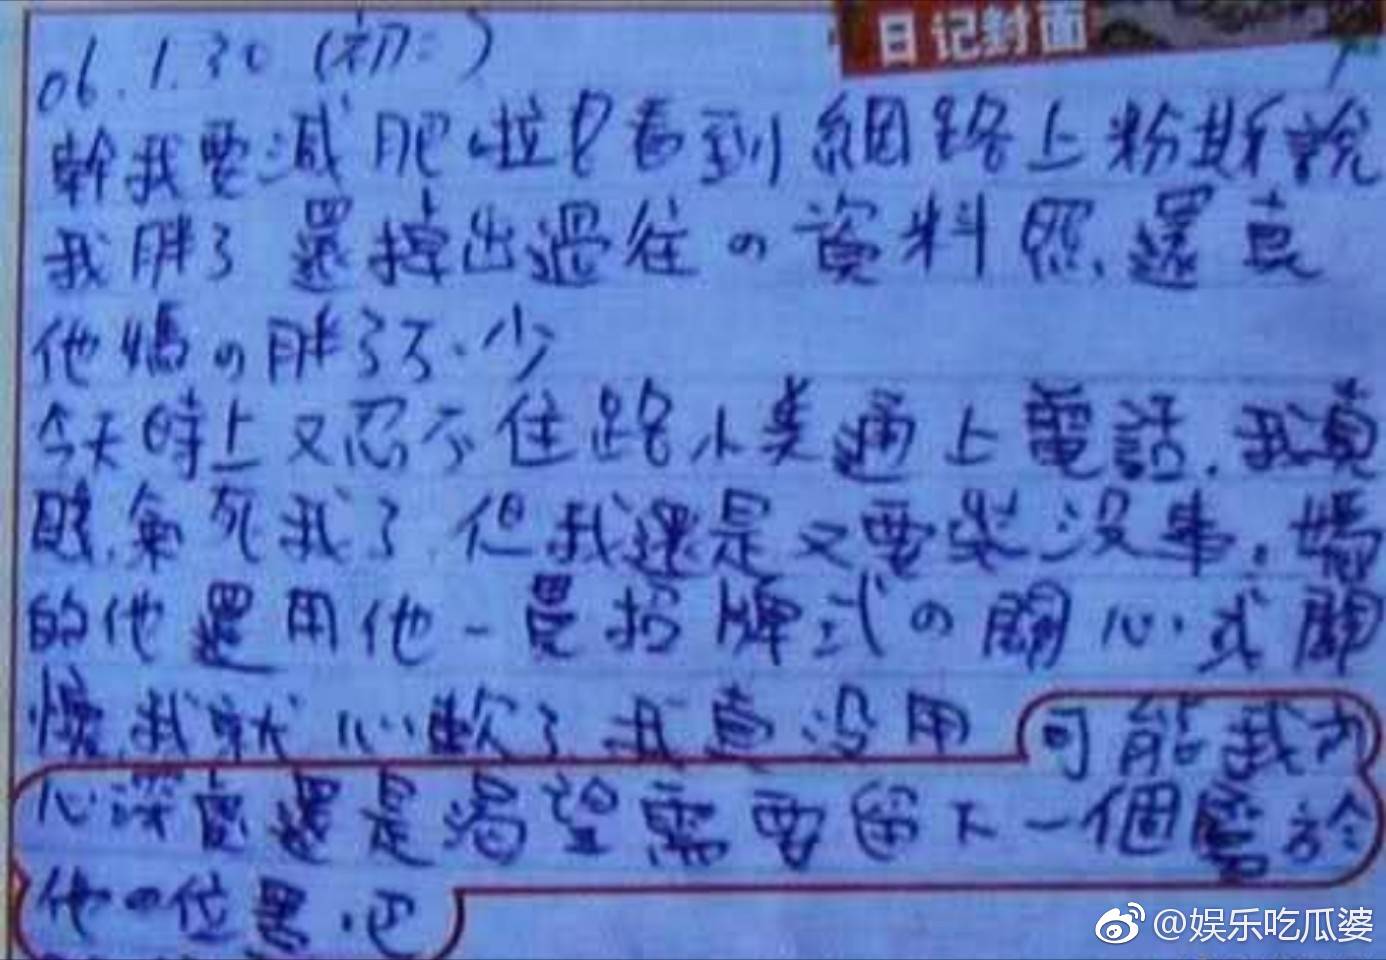 日记封面
06.1.30(初二)
幹我要減肥啦!看到網路上粉斯說
我胖了還掉出過往の資料照、還真
他媽の胖了不少
今天時上又忍不住路小美通上電話.我真
賤.氣死我了.但我還是又要裝沒事.媽
的他還用他一貫招牌式の關心.式關
懷.我就心軟了我真沒用可能我內
心深處還是渴望需要留下一個屬於
他の位置.吧
@娱乐吃瓜婆